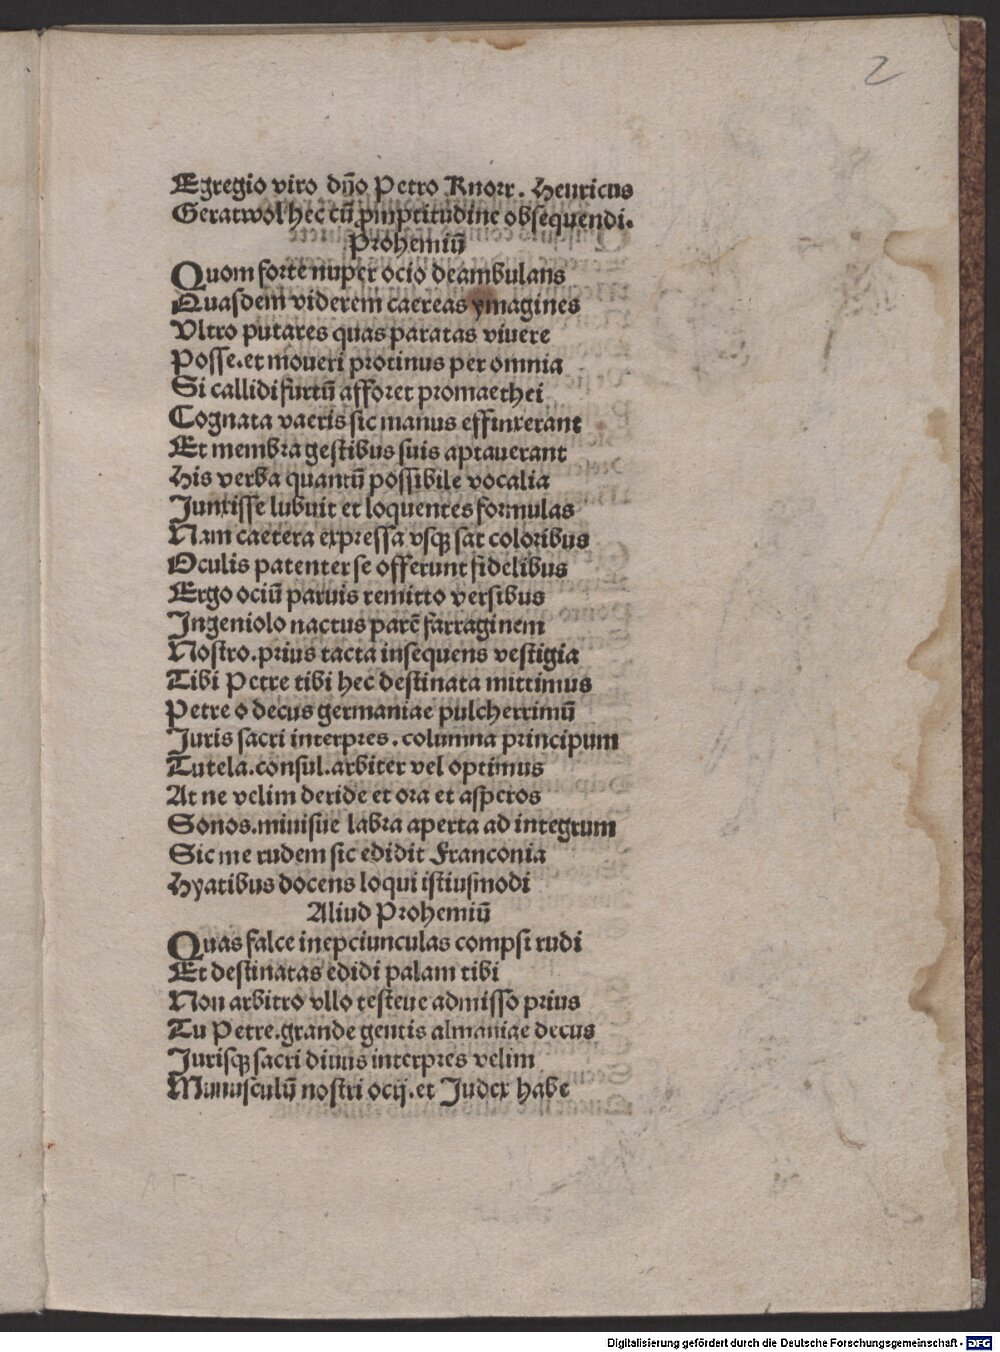 2
Egregio viro dn̄o Petro Knorr. Henricus
Geratwol hec cū ꝓmptitudine obsequendi.
Prohemiū
Quom forte nuper ocio deambulans
Quasdem viderem caereas ymagines
Vltro putares quas paratas viuere
Posse.et moueri protinus per omnia
Si callidi furtū afforet promaethei
Cognata vaeris sic manus effinxerant
Et membra gestibus suis aptauerant
His verba quantū possibile vocalia
Junxisse lubuit et loquentes formulas
Nam caetera expressa vsqꝫ sat coloribus
Oculis patenter se offerunt fidelibus
Ergo ociū paruis remitto versibus
Ingeniolo nactus parē farraginem
Nostro.prius tacta insequens vestigia
Tibi Petre tibi hec destinata mittimus
Petre o decus germaniae pulcherrimū
Juris sacri interpres.columna principum
Tutela.consul.arbiter vel optimus
At ne velim deride et ora et asperos
Sonos.miuisue labra aperta ad integrum
Sic me rudem sic edidit Franconia
Hyatibus docens loqui istiusmodi
Aliud Prohemiū
Quas falce inepciunculas compsi rudi
Et destinatas edidi palam tibi
Non arbitro vllo testeue admisso prius
Tu Petre.grande gentis almaniae decus
Jurisqꝫ sacri diuus interpres velim
Munusculū nostri ocij.et Judex habe
Digitalisierung gefördert durch die Deutsche Forschungsgemeinschaft - DFG